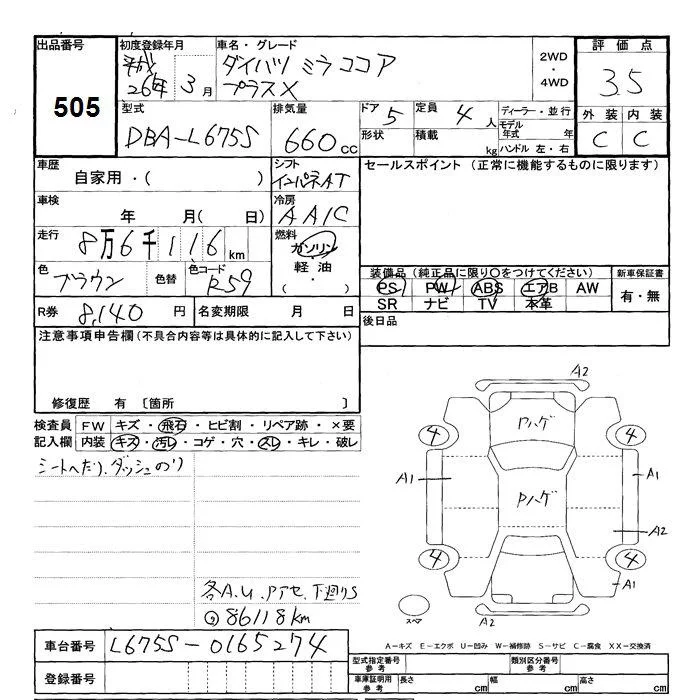 出品番号
505
初度登録年月
平成
26年 3月
車名・グレード
ダイハツ ミラココア
プラスX
2WD
・
4WD
評価点
3.5
外装 内装
C C
型式
DBA-L675S
排気量
660cc
ドア 5
形状
定員 4人
積載 kg
ディーラー・並行
モデル年式 年
ハンドル 左・右
車歴
自家用・( )
シフト
インパネAT
セールスポイント (正常に機能するものに限ります)
車検
年 月( 日)
冷房
AAIC
走行
8万6千116km
燃料
ガソリン
・
軽油
( )
色
ブラウン
色替
色コード
R59
装備品(純正品に限り○をつけてください)
PS PW ABS エアB AW
SR ナビ TV 本革
新車保証書
有・無
R券 8,140円
名変期限 月 日
後日品
注意事項申告欄(不具合内容等は具体的に記入して下さい)
修復歴 有 〔箇所 〕
検査員記入欄
FW キズ・飛石・ヒビ割・リペア跡・×要
内装 キズ・汚レ・コゲ・穴・スレ・キレ・破レ
シートへたり、ダッシュのり
各A.U.Pアセ.下廻りS
◎86118km
A2
Pハゲ
4 4
A1 A1
Pハゲ
A2
4 4
A1
スペア
A2
A-キズ E-エクボ U-凹み W-補修跡 S-サビ C-腐食 XX-交換済
車台番号 L675S-0165274
登録番号
型式指定番号 参考
類別区分番号 参考
車庫証明用 参考
長さ cm 幅 cm 高さ cm